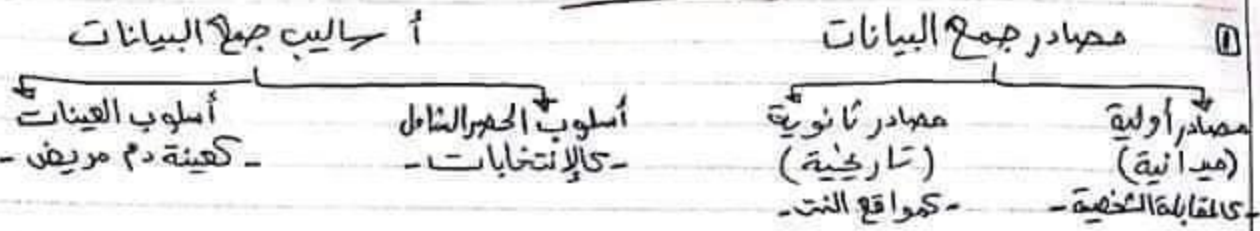 ١ مصادر جمع البيانات
مصادر أولية
(ميدانية)
- كالمقابلة الشخصية -
مصادر ثانوية
(تاريخية)
- كمواقع النت -
أساليب جمع البيانات
أسلوب الحصر الشامل
- كالإنتخابات -
أسلوب العينات
- كعينة دم مريض -